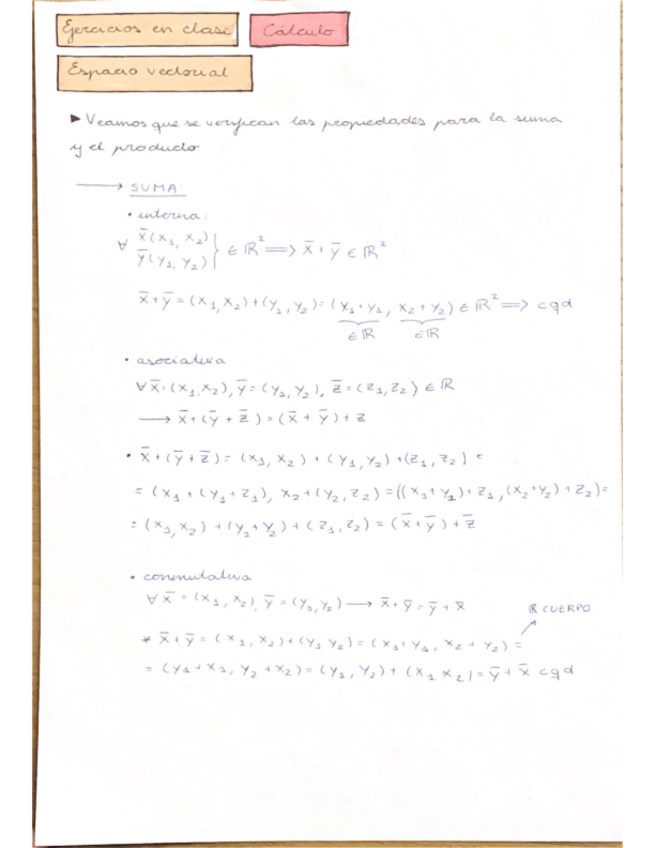 Ejercicios en clase Cálculo
Espacio vectorial
► Veamos que se verifican las propiedades para la suma
y el producto
⟶ SUMA:
• interna:
∀ x̄(x₁, x₂) ȳ(y₁, y₂) } ∈ ℝ² ⟹ x̄ + ȳ ∈ ℝ²
x̄ + ȳ = (x₁, x₂) + (y₁, y₂) = (x₁ + y₁, x₂ + y₂) ∈ ℝ² ⟹ cqd
∈ ℝ ∈ ℝ
• asociativa
∀ x̄ = (x₁, x₂), ȳ = (y₁, y₂), z̄ = (z₁, z₂) ∈ ℝ
⟶ x̄ + (ȳ + z̄) = (x̄ + ȳ) + z
• x̄ + (ȳ + z̄) = (x₁, x₂) + (y₁, y₂) + (z₁, z₂) =
= (x₁ + (y₁ + z₁), x₂ + (y₂, z₂) = ((x₁ + y₁) + z₁, (x₂ + y₂) + z₂) =
= (x₁, x₂) + (y₁ + y₂) + (z₁, z₂) = (x̄ + ȳ) + z̄
• conmutativa
∀ x̄ = (x₁, x₂), ȳ = (y₁, y₂) ⟶ x̄ + ȳ = ȳ + x̄
ℝ CUERPO
* x̄ + ȳ = (x₁, x₂) + (y₁ y₂) = (x₁ + y₁, x₂ + y₂) =
= (y₁ + x₁, y₂ + x₂) = (y₁, y₂) + (x₁ x₂) = ȳ + x̄ cqd